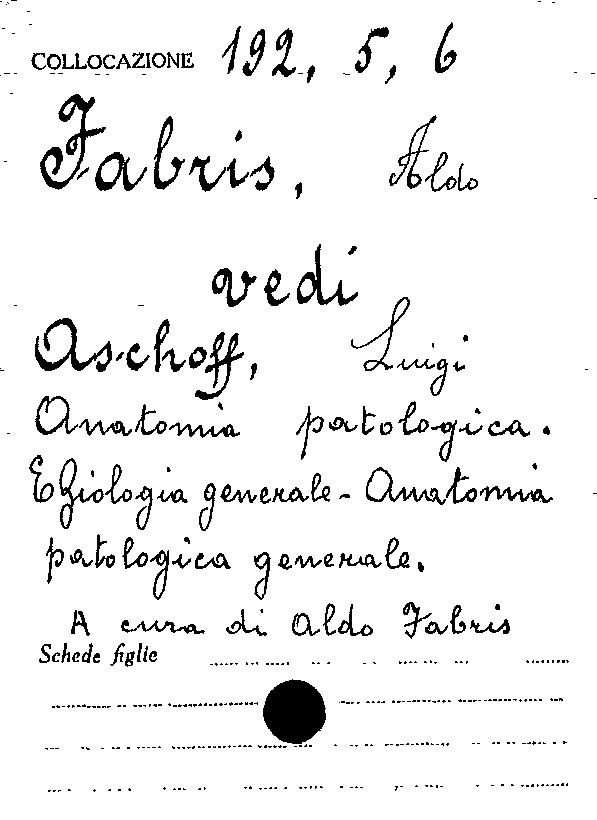 COLLOCAZIONE 192, 5, 6
Fabris, Aldo
vedi
Aschoff, Luigi
Anatomia patologica.
Eziologia generale - Anatomia
patologica generale.
A cura di Aldo Fabris
Schede figlie